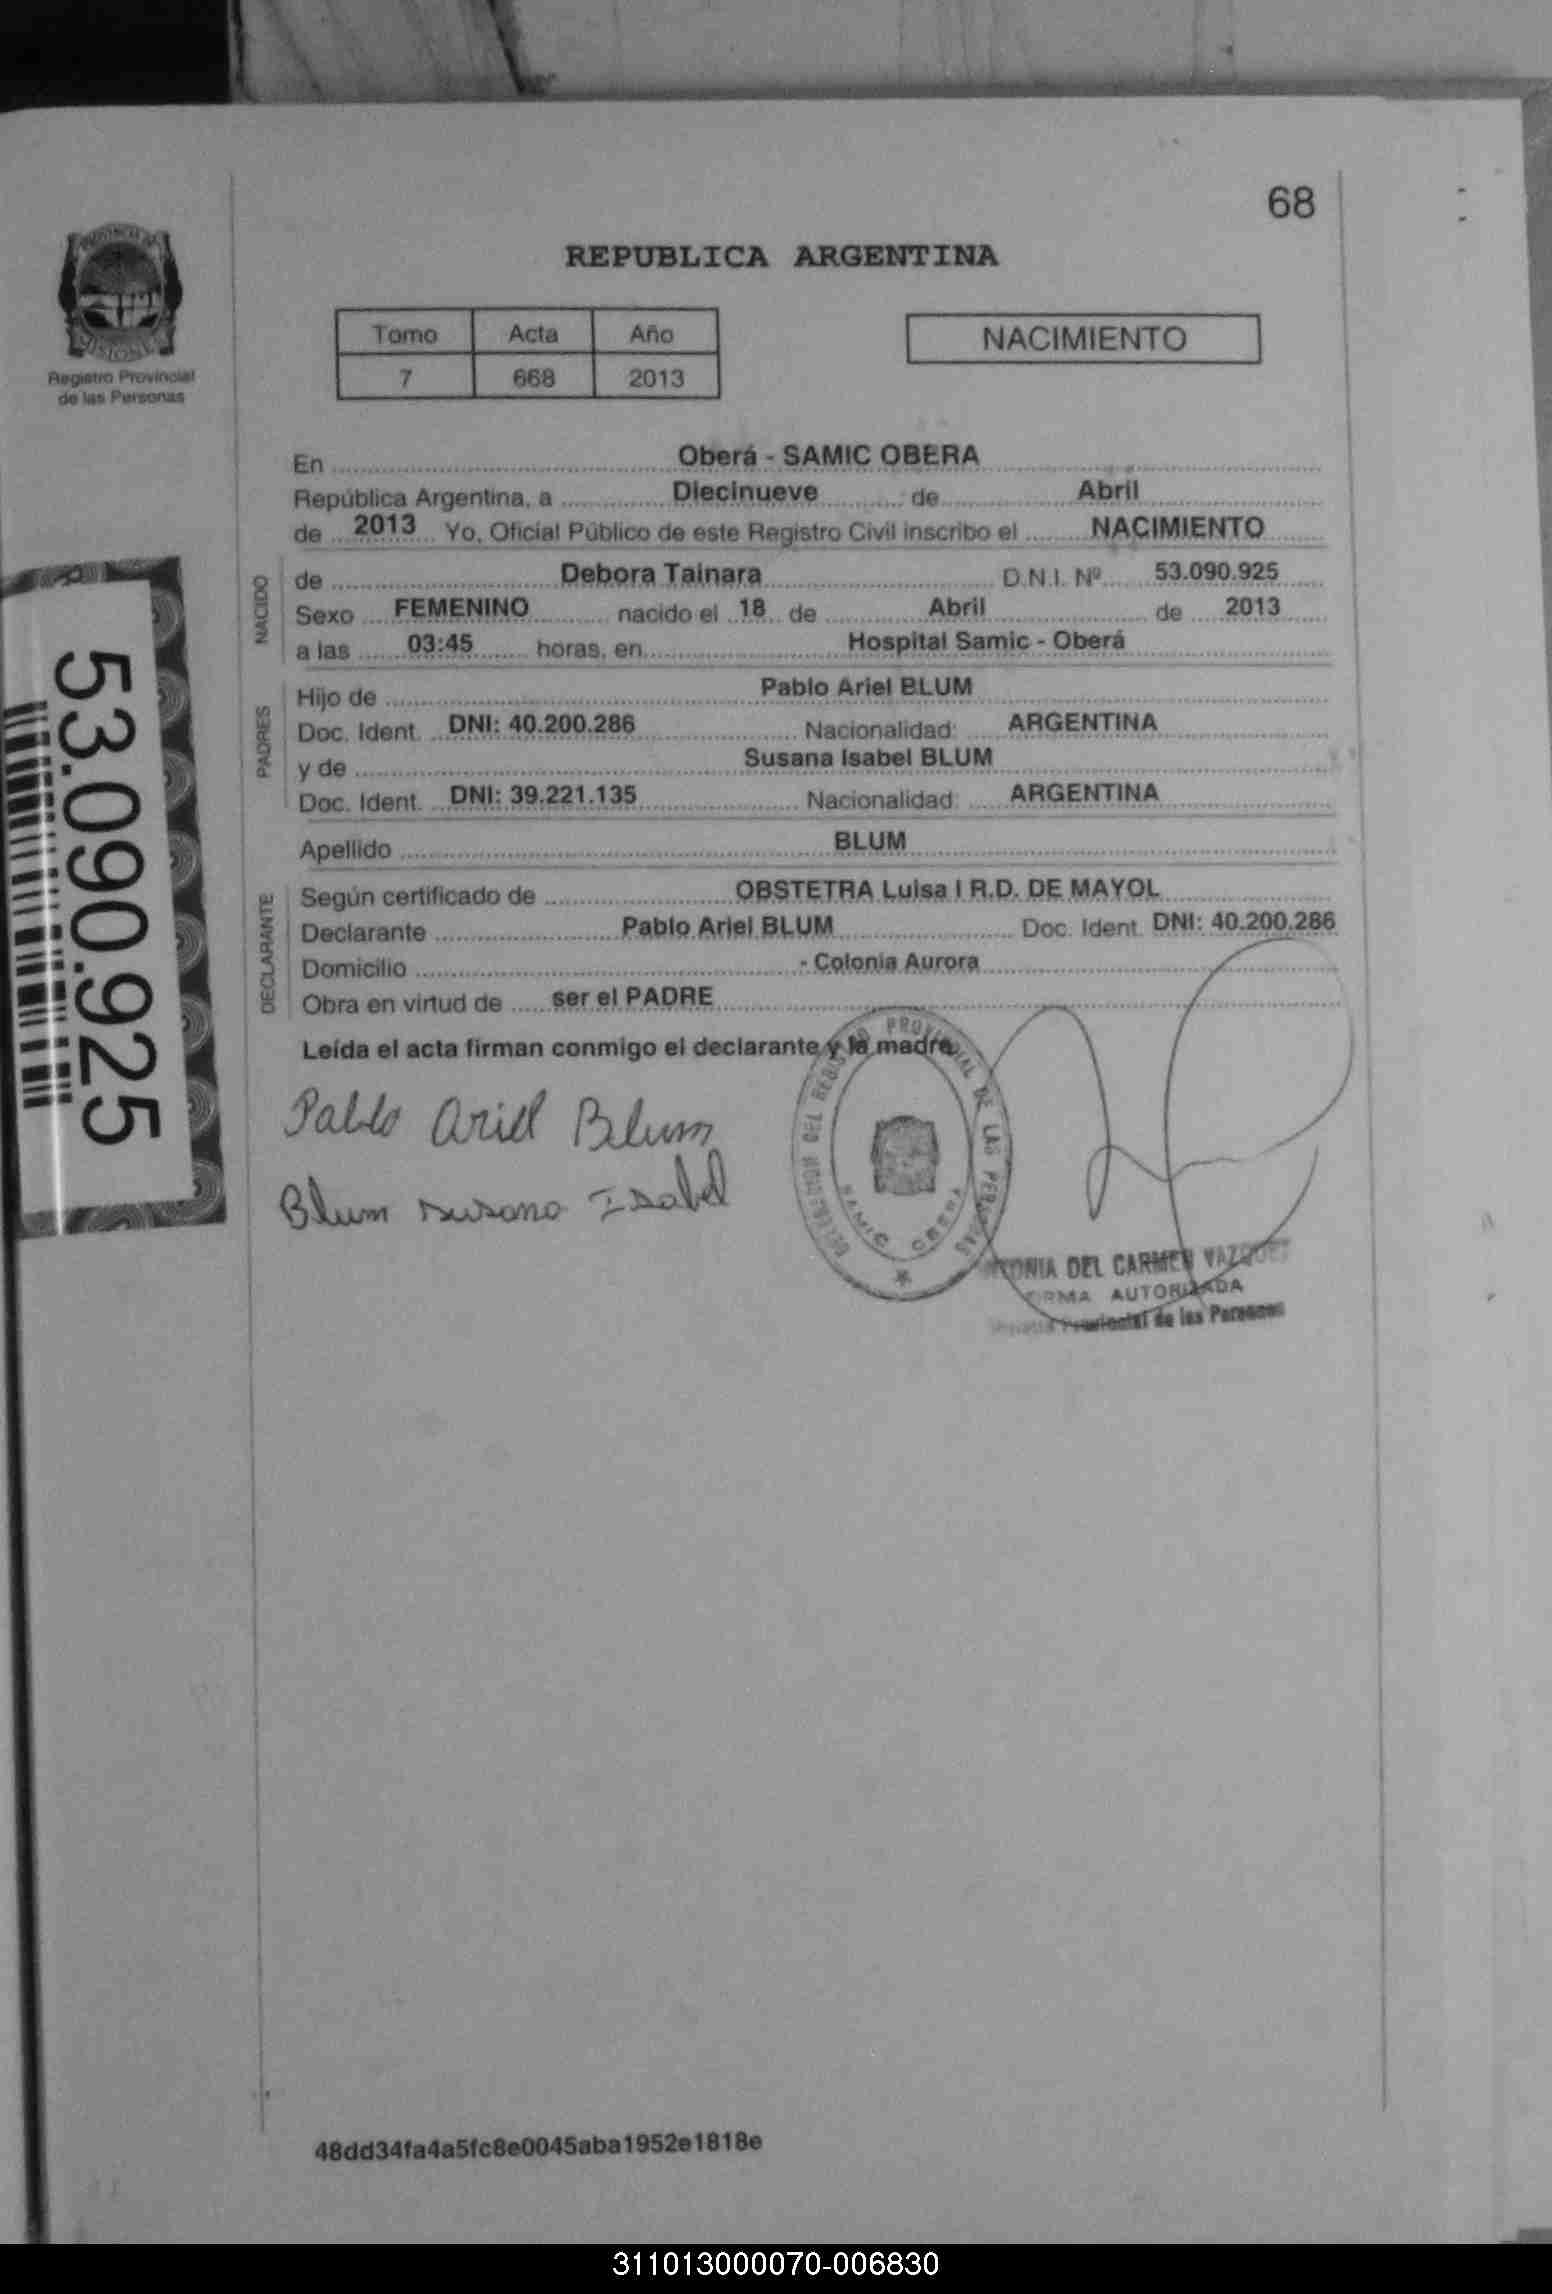 68
PROVINCIA DE
MISIONES
Registro Provincial
de las Personas
REPUBLICA ARGENTINA
Tomo Acta Año
7 668 2013
NACIMIENTO
En Oberá - SAMIC OBERA
República Argentina, a Diecinueve de Abril
de 2013 Yo, Oficial Público de este Registro Civil inscribo el NACIMIENTO
NACIDO
de Debora Tainara D.N.I. Nº 53.090.925
Sexo FEMENINO nacido el 18 de Abril de 2013
a las 03:45 horas, en Hospital Samic - Oberá
PADRES
Hijo de Pablo Ariel BLUM
Doc. Ident. DNI: 40.200.286 Nacionalidad: ARGENTINA
y de Susana Isabel BLUM
Doc. Ident. DNI: 39.221.135 Nacionalidad: ARGENTINA
Apellido BLUM
DECLARANTE
Según certificado de OBSTETRA Luisa I R.D. DE MAYOL
Declarante Pablo Ariel BLUM Doc. Ident. DNI: 40.200.286
Domicilio - Colonia Aurora
Obra en virtud de ser el PADRE
Leída el acta firman conmigo el declarante y la madre
Pablo Ariel Blum
Blum Susana Isabel
DELEGACION DEL REGISTRO PROVINCIAL DE LAS PERSONAS
SAMIC OBERA
DEL CARMEN VAZQUEZ
AUTORIZADA
Provincial de las Personas
53.090.925
48dd34fa4a5fc8e0045aba1952e1818e
311013000070-006830